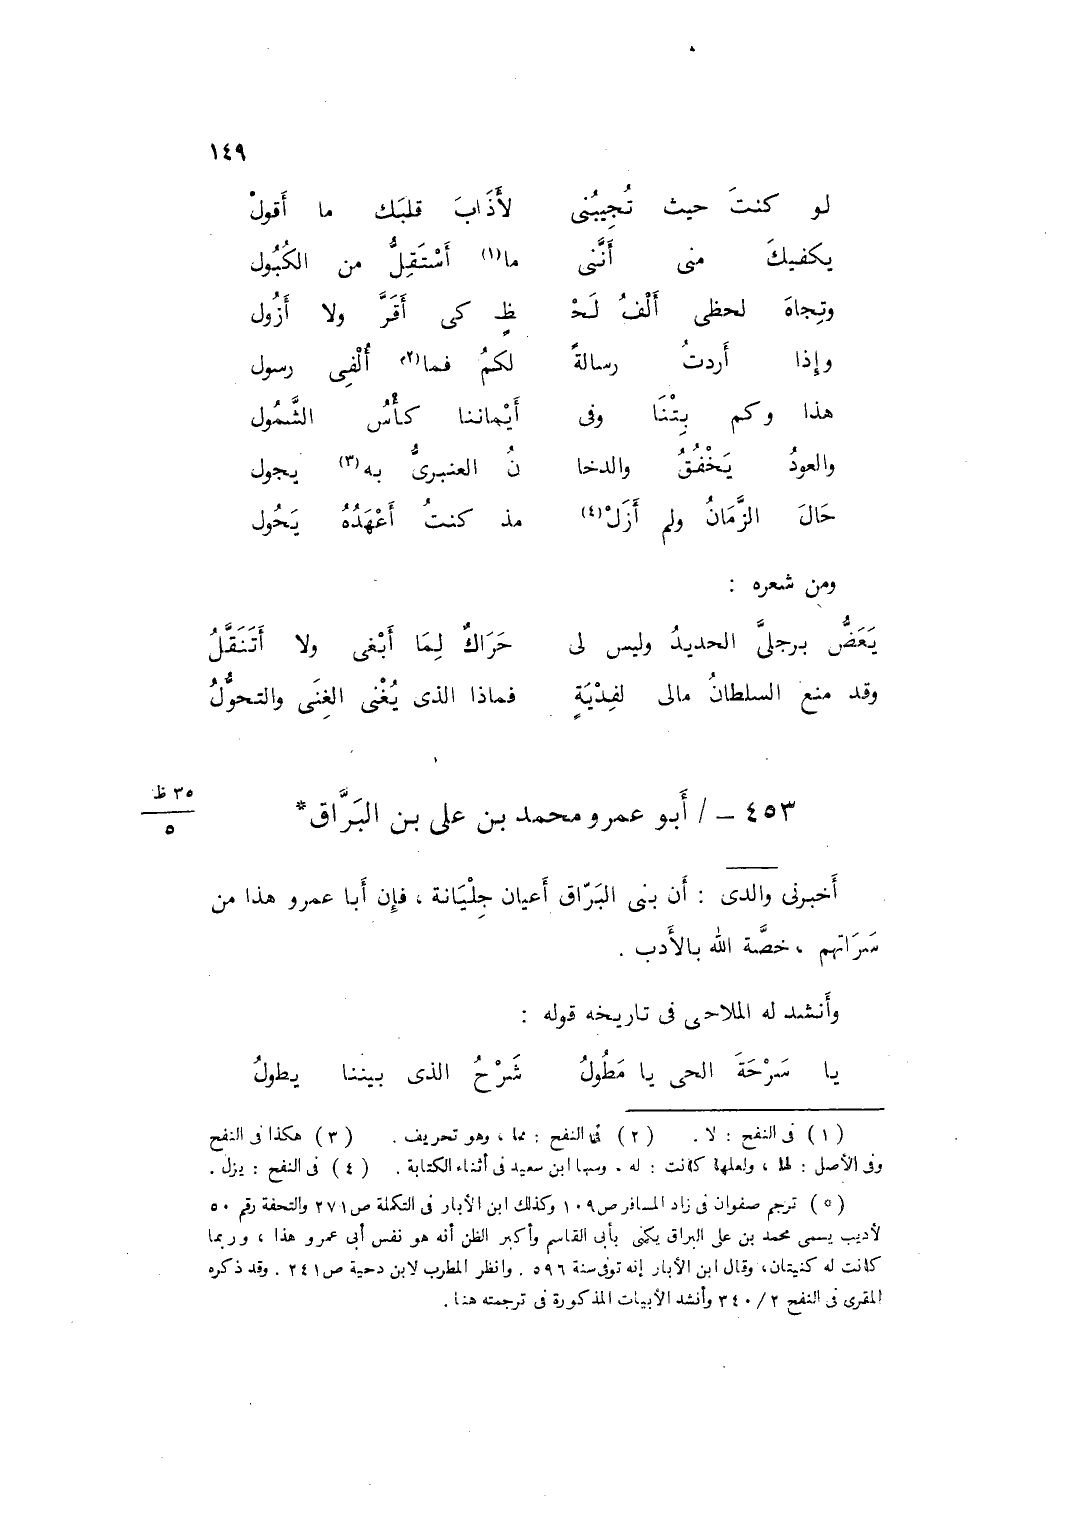 ١٤٩
لو كنتَ حيث تُجِيبُنى لأَذَابَ قلبَك ما أَقولْ
يكفيكَ منى أَنَّنى ما(١) أَسْتَقِلُّ من الكُبُول
وتِجاهَ لحظى أَلْفُ لَحْ ظٍ كى أَقَرَّ ولا أَزُول
وإِذا أَردتُ رسالةً لكمُ فما(٢) أُلْفِى رسول
هذا وكم بِتْنَا وفى أَيْماننا كأْسُ الشَّمُول
والعودُ يَخْفُقُ والدخا نُ العنبرىُّ به(٣) يجول
حَالَ الزَّمَانُ ولم أَزَلْ(٤) مذ كنتُ أَعْهَدُهُ يَحُول
ومن شعره :
يَعَضُّ برجلىَّ الحديدُ وليس لى حَرَاكٌ لِمَا أَبْغى ولا أَتَنَقَّلُ
وقد منع السلطانُ مالى لفِدْيَةٍ فماذا الذى يُغْنى الغِنَى والتحوُّلُ
٣٥ ظ
٥
٤٥٣ – / أَبو عمرو محمد بن على بن البَرَّاق*
أَخبرنى والدى : أَن بنى البَرّاق أَعيان جِلْيَانة ، فإِن أَبا عمرو هذا من
سَرَاتهم ، خصَّة الله بالأَدب .
وأَنشد له الملاحى فى تاريخه قوله :
يا سَرْحَةَ الحى يا مَطُولُ شَرْحُ الذى بيننا يطولُ
(١) فى النفح : لا . (٢) فى النفح : مما ، وهو تحريف . (٣) هكذا فى النفح
وفى الأصل : لها ، ولعلها كانت : له . وسها ابن سعيد فى أثناء الكتابة . (٤) فى النفح : يزل .
(*) ترجم صفوان فى زاد المسافر ص١٠٩ وكذلك ابن الأبار فى التكملة ص٢٧١ والتحفة رقم ٥٠
لأديب يسمى محمد بن على البراق يكنى بأبى القاسم وأكبر الظن أنه هو نفس أبى عمرو هذا ، وربما
كانت له كنيتان، وقال ابن الأبار إنه توفى سنة ٥٩٦ . وانظر المطرب لابن دحية ص٢٤١ . وقد ذكره
المقرى فى النفح ٢/ ٣٤٠ وأنشد الأبيات المذكورة فى ترجمته هنا .